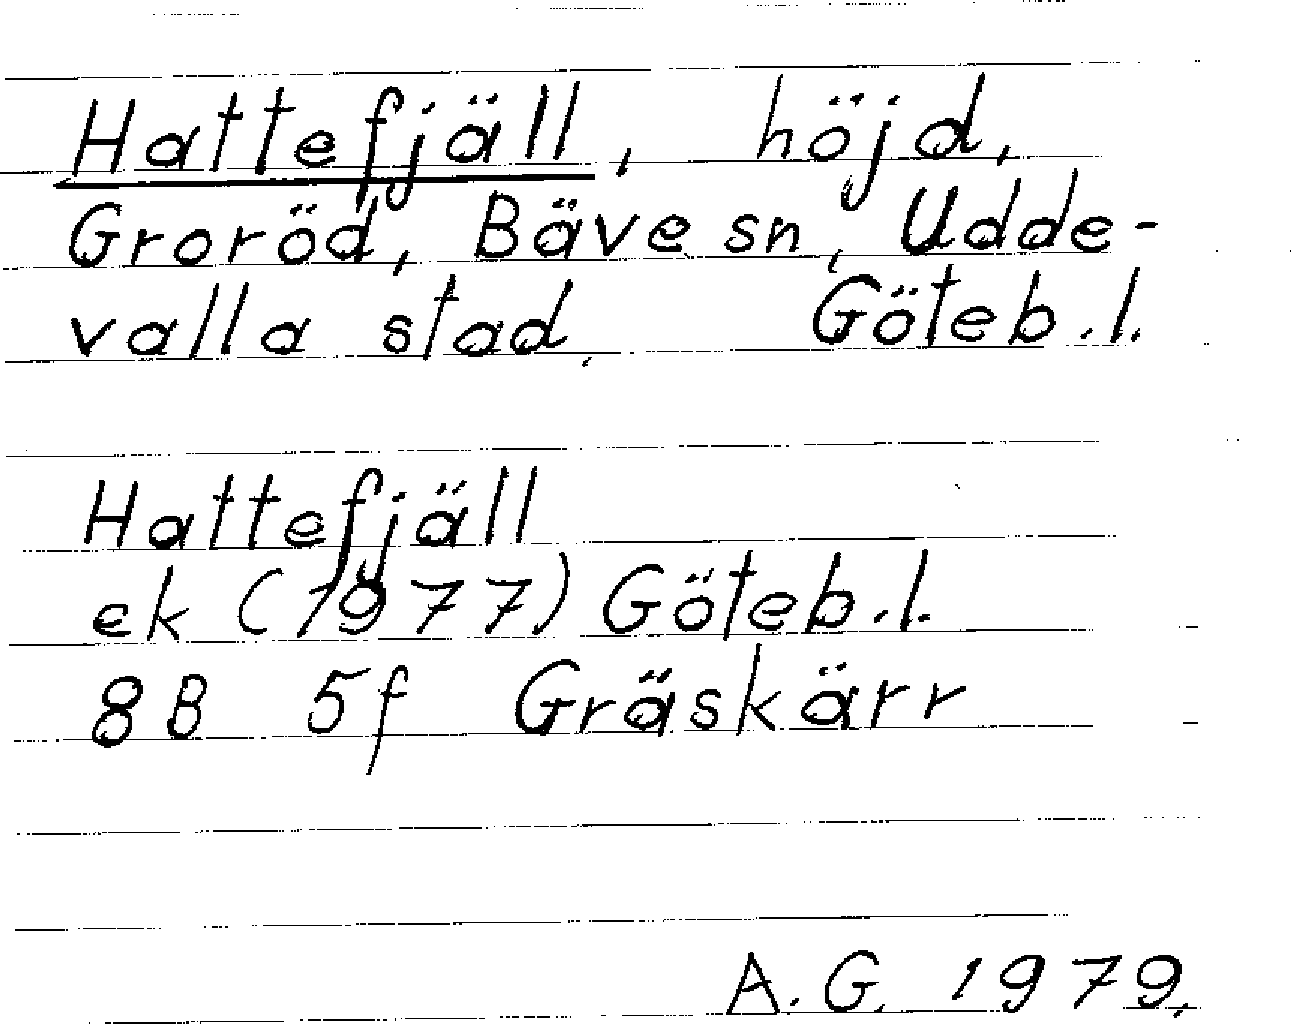 Hattefjäll, höjd,
Groröd, Bäve sn, Udde-
valla stad. Göteb.l.
Hattefjäll
ek (1977) Göteb.l.
8B 5f Gräskärr
A.G. 1979.